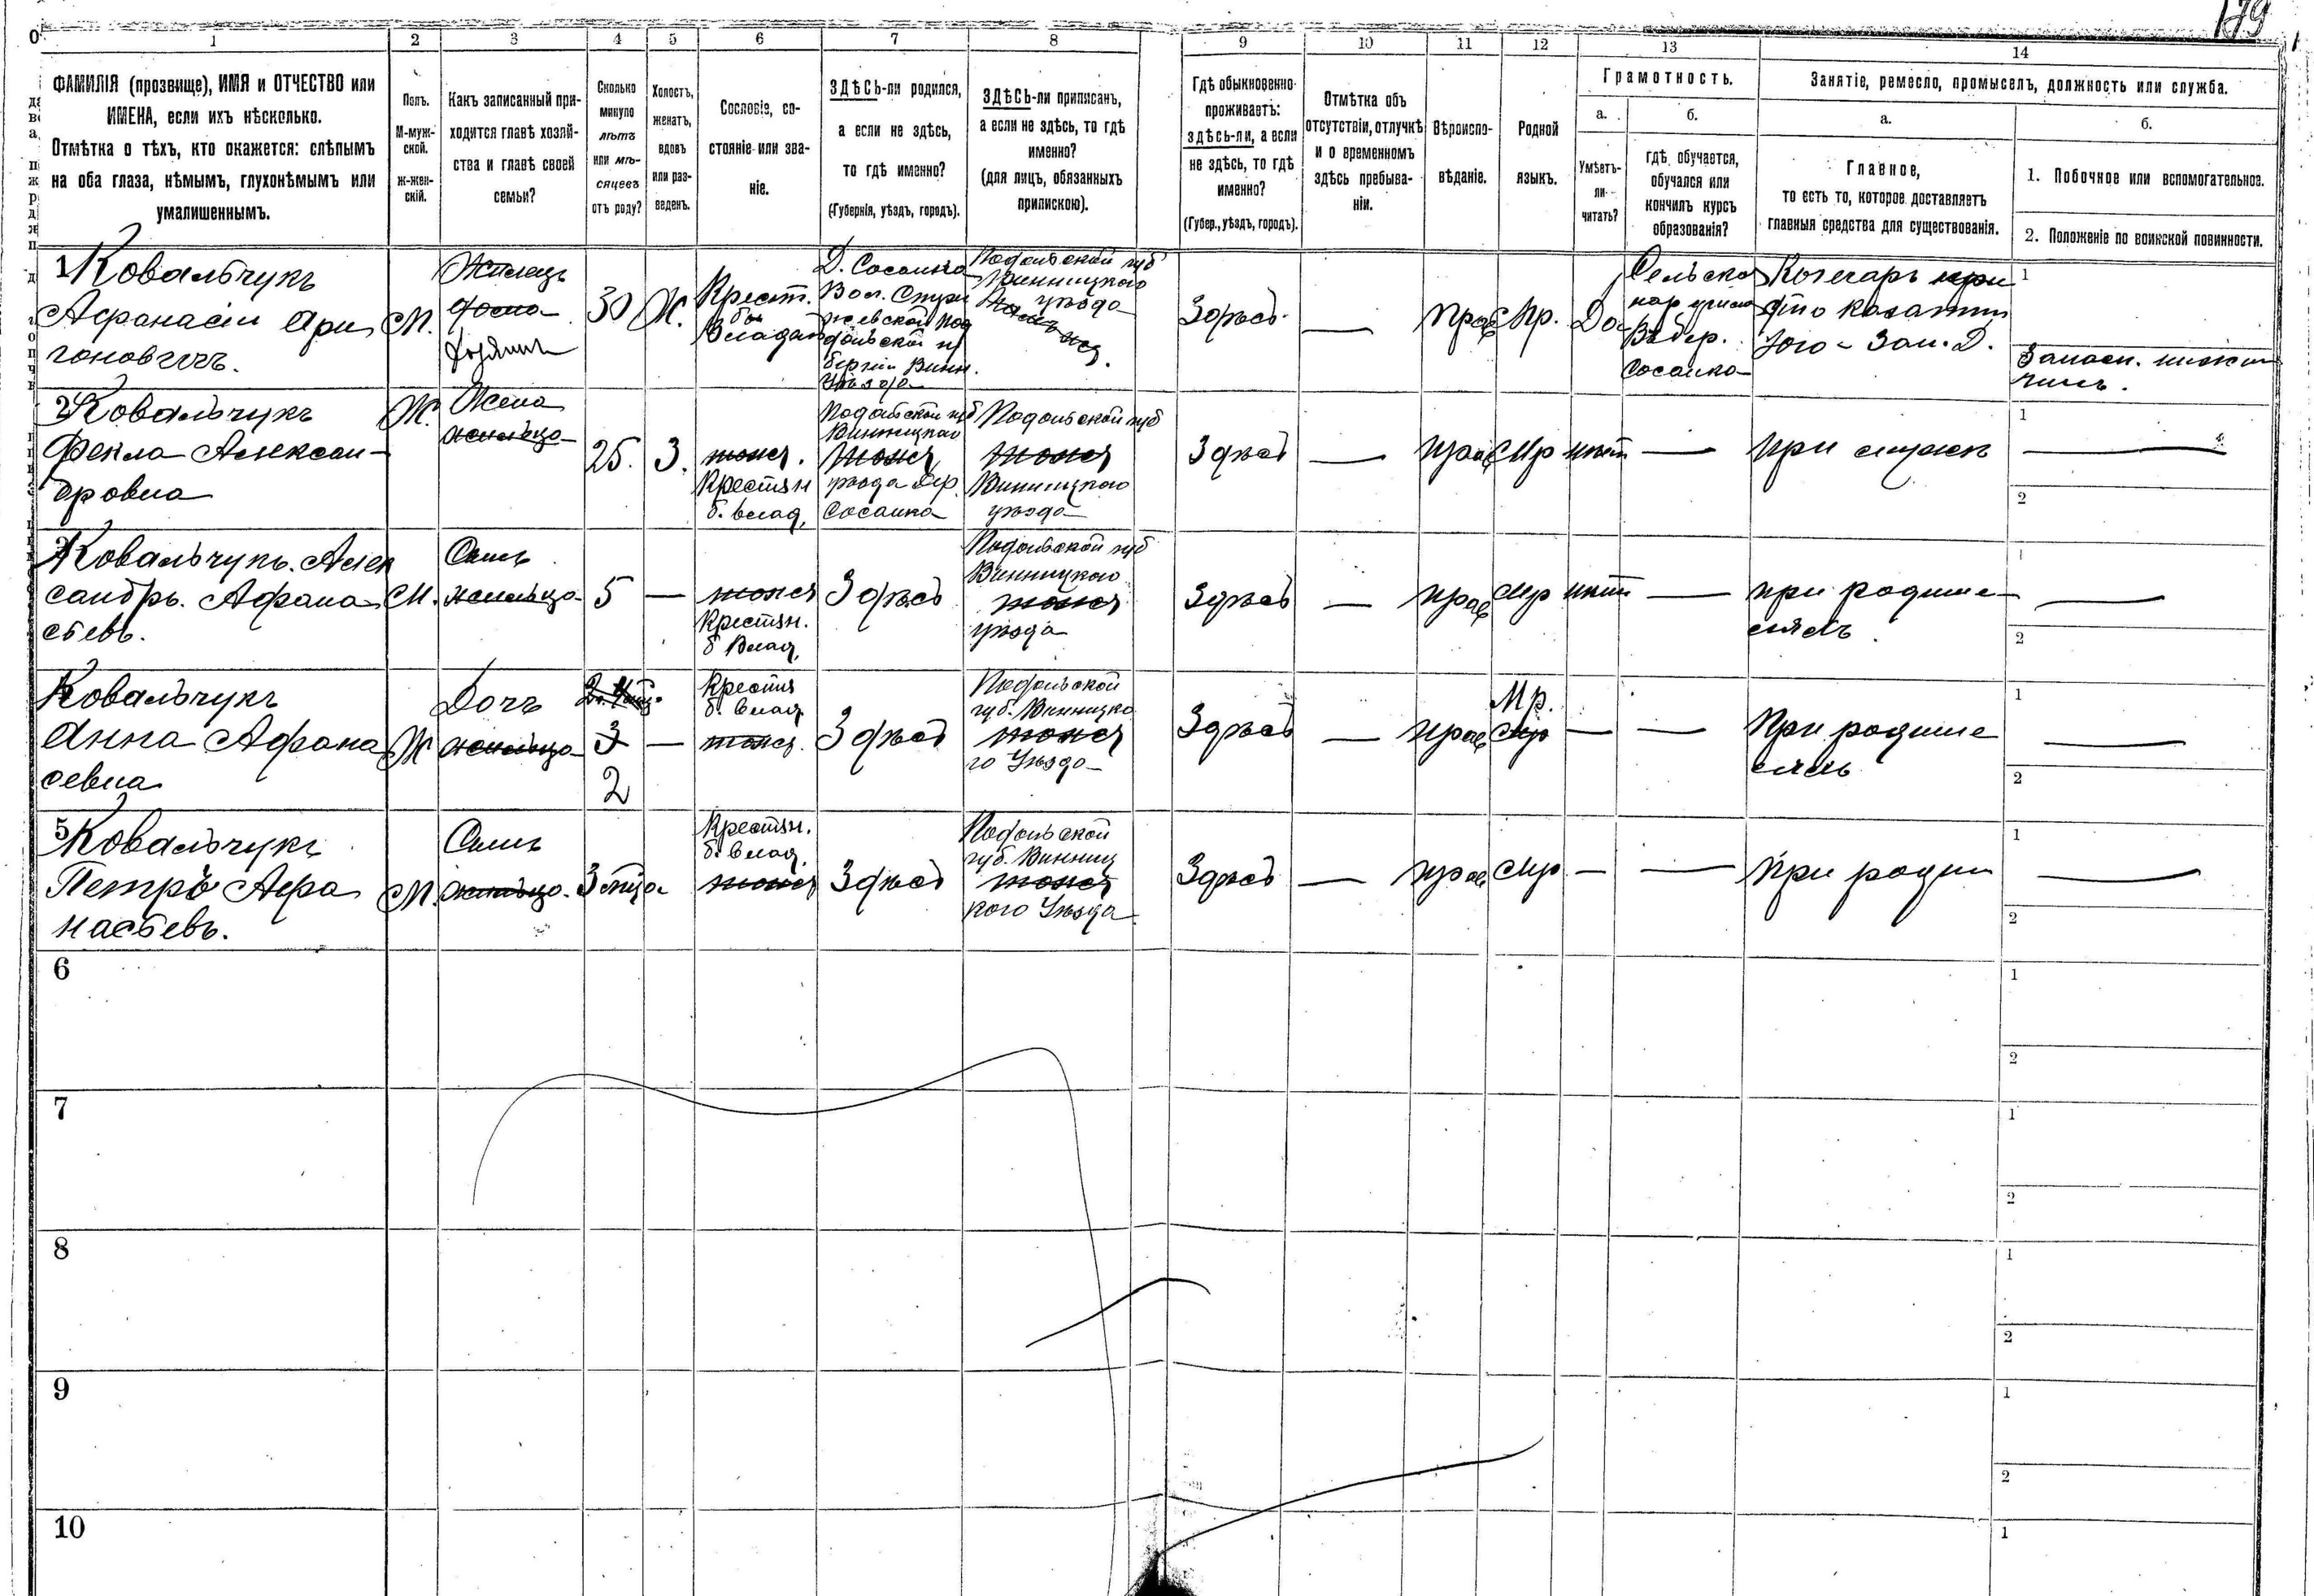 179
0 1 2 3 4 5 6 7 8 9 10 11 12 13 14
ФАМИЛІЯ (прозвище), ИМЯ и ОТЧЕСТВО или
ИМЕНА, если ихъ нѣсколько.
Отмѣтка о тѣхъ, кто окажется: слѣпымъ
на оба глаза, нѣмымъ, глухонѣмымъ или
умалишеннымъ.
Полъ.
М-муж-
ской.
ж-жен-
скій.
Какъ записанный при-
ходится главѣ хозяй-
ства и главѣ своей
семьи?
Сколько
минуло
лѣтъ
или мѣ-
сяцевъ
отъ роду?
Холостъ,
женатъ,
вдовъ
или раз-
веденъ.
Сословіе, со-
стояніе или зва-
ніе.
ЗДѢСЬ-ли родился,
а если не здѣсь,
то гдѣ именно?
(Губернія, уѣздъ, городъ).
ЗДѢСЬ-ли приписанъ,
а если не здѣсь, то гдѣ
именно?
(для лицъ, обязанныхъ
припискою).
Гдѣ обыкновенно
проживаетъ:
здѣсь-ли, а если
не здѣсь, то гдѣ
именно?
(Губер., уѣздъ, городъ).
Отмѣтка объ
отсутствіи, отлучкѣ
и о временномъ
здѣсь пребыва-
ніи.
Вѣроиспо-
вѣданіе.
Родной
языкъ.
Грамотность.
а.
Умѣетъ-
ли
читать?
б.
гдѣ обучается,
обучался или
кончилъ курсъ
образованія?
Занятіе, ремесло, промыселъ, должность или служба.
а.
Главное,
то есть то, которое доставляетъ
главныя средства для существованія.
б.
1. Побочное или вспомогательное.
2. Положеніе по воинской повинности.
1 Ковальчукъ
Афанасій
М.
Жилецъ
Хозяинъ
30
Ж.
Крест.
бы
Владѣл
Д. Сосанка
Вол.
Подольской губ
Винницкаго
уѣзда
Здѣсь
—
Прав
Мр.
Да
Сельско
Сосанка
Кочегаръ при
Депо Казатин
Юго-Зап. Д.
1
Запасн. нижн
чинъ.
2 Ковальчукъ
Фекла Алексан-
дровна
Ж.
Жена
жильца
25.
З.
тоже.
Крестьян
б. влад,
Подольской губ
Винницкаго
тоже
уѣзда дер
Сосанка
Подольской губ
тоже
Винницкаго
уѣзда
Здѣсь
—
прав
Мр
нѣт
—
при мужѣ
1
2
3 Ковальчукъ. Алек
сандръ. Афана
сьевъ.
М.
Сынъ
жильца
5
—
тоже
Крестьян.
б Влад,
Здѣсь
Подольской губ
Винницкаго
тоже
уѣзда
Здѣсь
—
прав
Мр
нѣт
—
при родите
ляхъ
1
2
Ковальчукъ
Анна Афана
севна
Ж
Дочъ
жильца
3
2
—
Крестья
б. влад
тоже.
Здѣсь
Подольской
губ. Винницка
тоже
го Уѣзда
Здѣсь
—
прав
Мр.
Мр
—
—
При родите
ляхъ
1
2
5 Ковальчукъ
Петръ Афа
насьевъ.
М.
Сынъ
жильца.
3 мѣца
Крестьян.
б. влад,
тоже
Здѣсь
Подольской
губ. Винниц
тоже
кого Уѣзда
Здѣсь
—
прав
Мр.
—
—
При роди
1
2
6
1
2
7
1
2
8
1
2
9
1
2
10
1